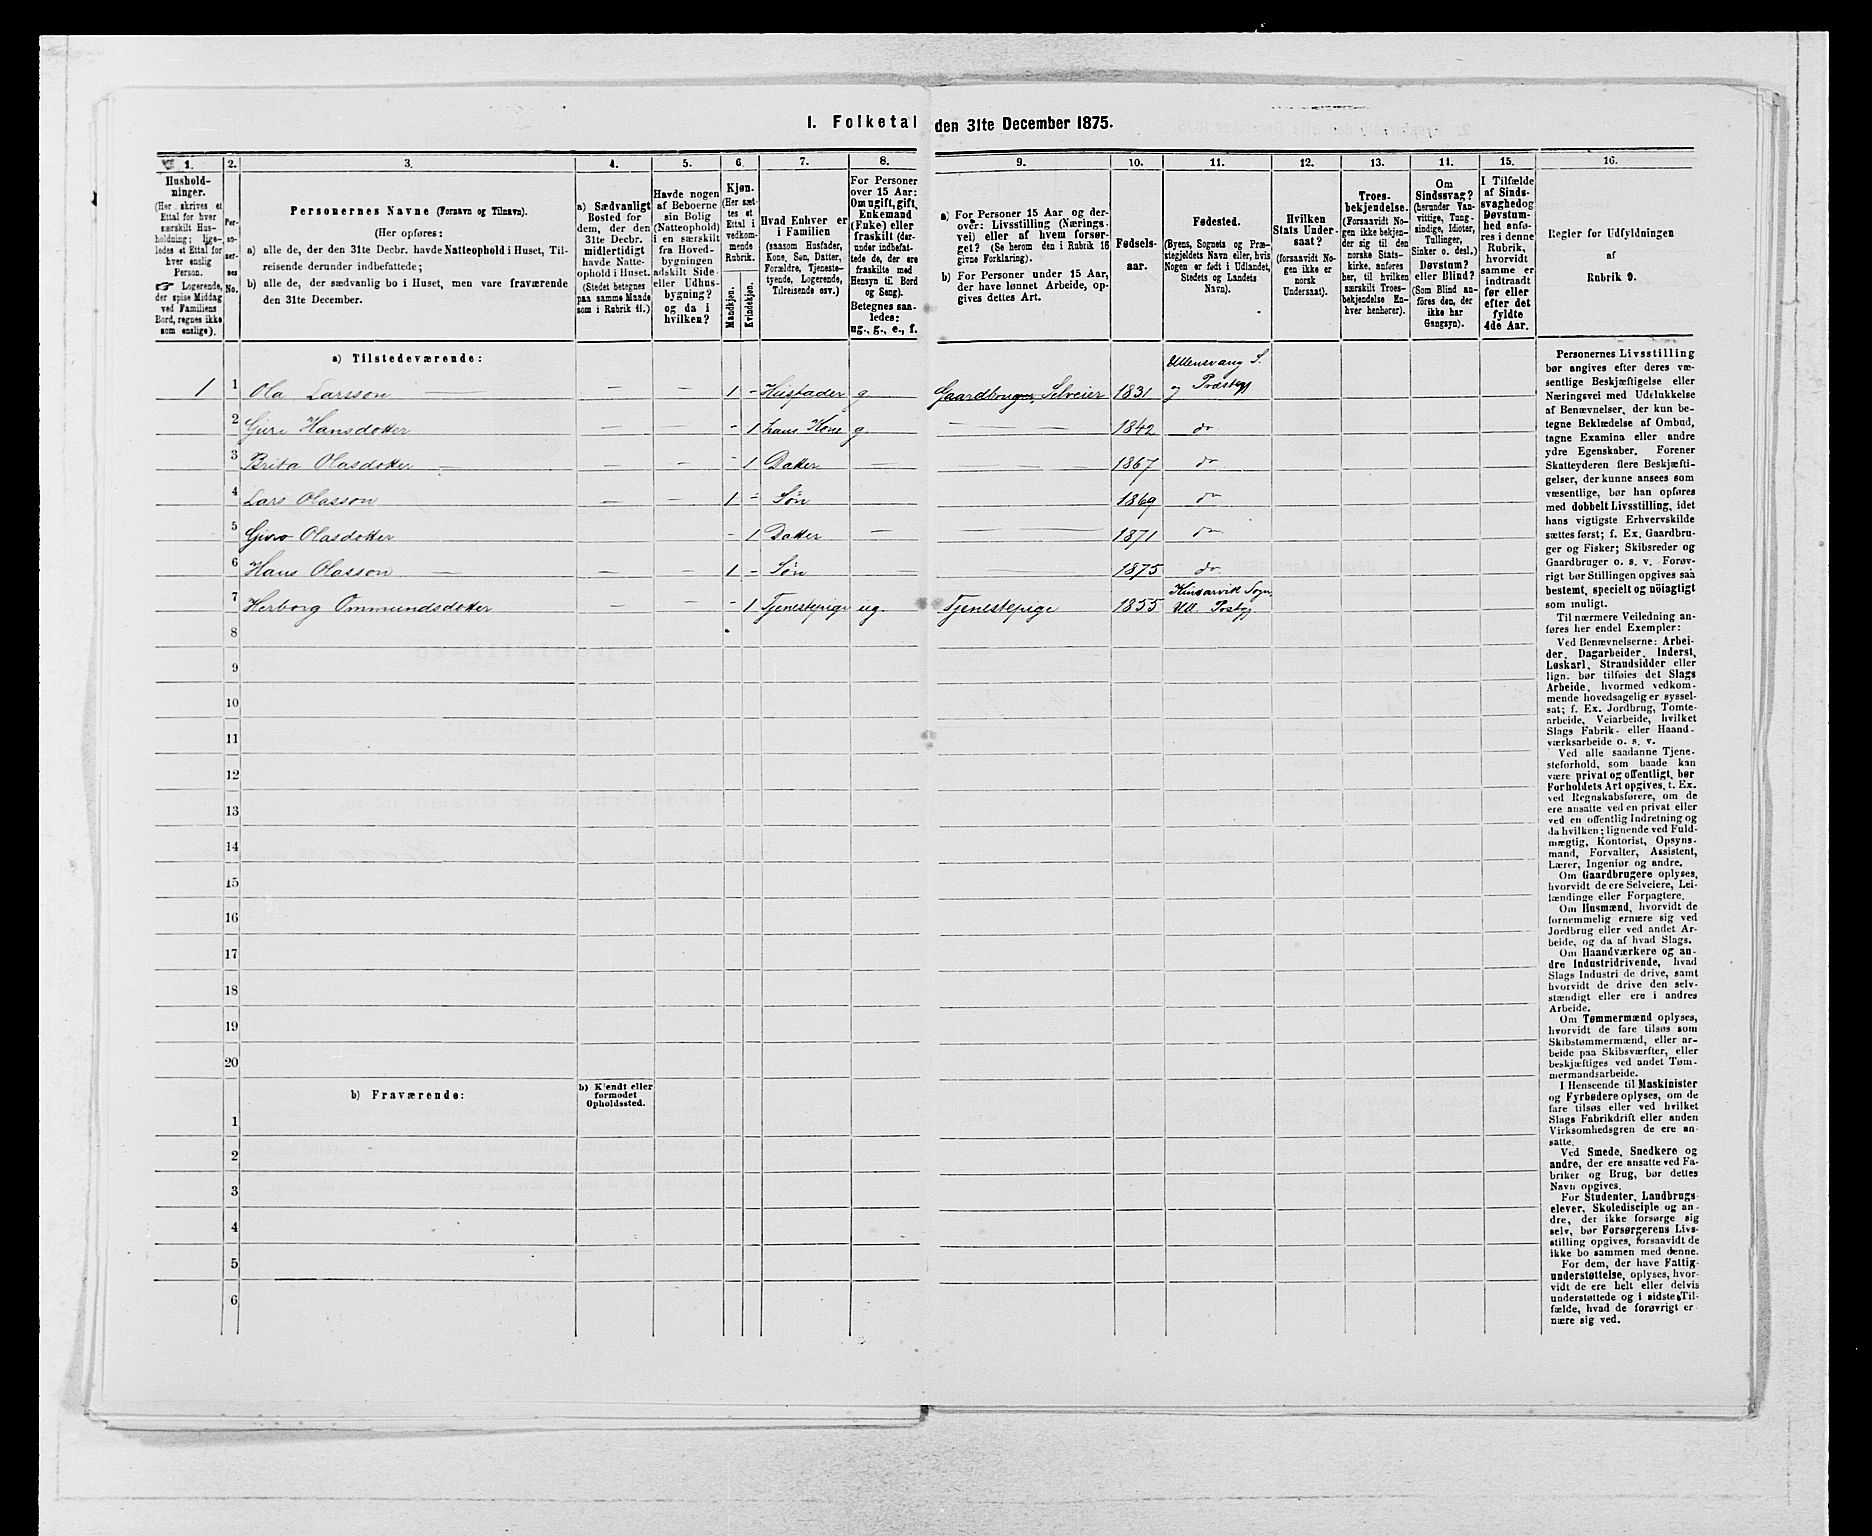 I. Folketal den 31te December 1875.
1. 2. 3. 4. 5. 6. 7. 8. 9. 10. 11. 12. 13. 14. 15. 16.
Hushold-
ninger.
(Her skrives et
Ettal for hver
særskilt Hus-
holdning; lige-
ledes et Ettal for
hver enslig
Person.
☞ Logerende,
der spise Middag
ved Familiens
Bord, regnes ikke
som enslige).
Per-
so-
ner-
nes
No.
Personernes Navne (Fornavn og Tilnavn).
(Her opføres:
a) alle de, der den 31te Decbr. havde Natteophold i Huset, Til-
reisende derunder indbefattede;
b) alle de, der sædvanlig bo i Huset, men vare fraværende
den 31te December.
a) Sædvanligt
Bosted for
dem, der den
31te Decbr.
midlertidigt
havde Natte-
ophold i Huset.
(Stedet betegnes
paa samme Maade
som i Rubrik 11.)
Havde nogen
af Beboerne
sin Bolig
(Natteophold)
i en særskilt
fra Hoved-
bygningen
adskilt Side-
eller Udhus-
bygning?
og da i
hvilken?
Kjøn.
(Her sæt-
tes et
Ettal i
vedkom-
mende
Rubrik.
Mandkjøn.
Kvindekjøn.
Hvad Enhver er
i Familien
(saasom Husfader,
Kone, Søn, Datter,
Forældre, Tjeneste-
tyende, Logerende,
Tilreisende osv.)
For Personer
over 15 Aar:
Om ugift, gift,
Enkemand
(Enke) eller
fraskilt (der-
under indbefat-
tede de, der ere
fraskilte med
Hensyn til Bord
og Seng).
Betegnes saa-
ledes:
ug., g., e., f.
a) For Personer 15 Aar og der-
over: Livsstilling (Nærings-
vei) eller af hvem forsør-
get? (Se herom den i Rubrik 16
givne Forklaring).
b) For Personer under 15 Aar,
der have lønnet Arbeide, op-
gives dettes Art.
Fødsels-
aar.
Fødested.
(Byens, Sognets og Præ-
stegjeldets Navn eller, hvis
Nogen er født i Udlandet,
Stedets og Landets
Navn).
Hvilken
Stats Under-
saat?
(forsaavidt No-
gen ikke er
norsk
Undersaat).
Troes-
bekjendelse.
(Forsaavidt No-
gen ikke bekjen-
der sig til den
norske Stats-
kirke, anføres
her, til hvilken
særskilt Troes-
bekjendelse En-
hver henhører).
Om
Sindssvag?
(herunder Van-
vittige, Tung-
sindige, Idioter,
Tullinger,
Sinker o. desl.)
Døvstum?
eller Blind?
(Som Blind an-
føres den, der
ikke har
Gangsyn).
I Tilfælde
af Sinds-
svaghed og
Døvstum-
hed anfø-
res i denne
Rubrik,
hvorvidt
samme er
indtraadt
før eller
efter det
fyldte
4de Aar.
Regler for Udfyldningen
af
Rubrik 9.
a) Tilstedeværende:
1 1 Ola Larsson — — 1 - Husfader g Gaardbruger, Selveier 1831 Ullensvang S. og Præstegj
2 Guri Hansdotter — — - 1 hans Kone g — 1842 do
3 Brita Olasdotter — — - 1 Datter — — 1867 do
4 Lars Olasson — — 1 - Søn — 1869 do
5 Guro Olasdotter - 1 Datter — — 1871 do
6 Hans Olasson — — 1 - Søn — 1875 do
7 Herborg Ommundsdotter — — - 1 Tjenestepige ug. Tjenestepige 1855 Kinsarvik Sogn, Ull. Prstgj
8
9
10
11
12
13
14
15
16
17
18
19
20
b) Fraværende:
b) Kjendt eller
formodet
Opholdssted.
1
2
3
4
5
6
Personernes Livsstilling
bør angives efter deres væ-
sentlige Beskjæftigelse eller
Næringsvei med Udelukkelse
af Benævnelser, der kun be-
tegne Beklædelse af Ombud,
tagne Examina eller andre
ydre Egenskaber. Forener
Skatteyderen flere Beskjæfti-
gelser, der kunne ansees som
væsentlige, bør han opføres
med dobbelt Livsstilling, idet
hans vigtigste Erhvervskilde
sættes først; f. Ex. Gaardbru-
ger og Fisker; Skibsreder og
Gaardbruger o. s. v. Forøv-
rigt bør Stillingen opgives saa
bestemt, specielt og nøiagtigt
som muligt.
Til nærmere Veiledning an-
føres her endel Exempler:
Ved Benævnelserne: Arbei-
der, Dagarbeider, Inderst,
Løskarl, Strandsidder eller
lign. bør tilføies det Slags
Arbeide, hvormed vedkom-
mende hovedsagelig er syssel-
sat; f. Ex. Jordbrug, Tomte-
arbeide, Veiarbeide, hvilket
Slags Fabrik- eller Haand-
værksarbeide o. s. v.
Ved alle saadanne Tjene-
steforhold, som baade kan
være privat og offentligt, bør
Forholdets Art opgives, t. Ex.
ved Regnskabsførere, om de
ere ansatte ved en privat eller
ved en offentlig Indretning og
da hvilken; lignende ved Fuld-
mægtig, Kontorist, Opsyns-
mand, Forvalter, Assistent,
Lærer, Ingeniør og andre.
Om Gaardbrugere oplyses,
hvorvidt de ere Selveiere, Lei-
lændinge eller Forpagtere.
Om Husmænd, hvorvidt de
fornemmelig ernære sig ved
Jordbrug eller ved andet Ar-
beide, og da af hvad Slags.
Om Haandværkere og an-
dre Industridrivende, hvad
Slags Industri de drive, samt
hvorvidt de drive den selv-
stændigt eller ere i andres
Arbeide.
Om Tømmermænd oplyses,
hvorvidt de fare tilsøs som
Skibstømmermænd, eller ar-
beide paa Skibsværfter, eller
beskjæftiges ved andet Tøm-
mermandsarbeide.
I Henseende til Maskinister
og Fyrbødere oplyses, om de
fare tilsøs eller ved hvilket
Slags Fabrikdrift eller anden
Virksomhedsgren de ere an-
satte.
Ved Smede, Snedkere og
andre, der ere ansatte ved Fa-
briker og Brug, bør dettes
Navn opgives.
For Studenter, Landbrugs-
elever, Skoledisciple og an-
dre, der ikke forsørge sig
selv, bør Forsørgerens Livs-
stilling opgives, forsaavidt de
ikke bo sammen med denne.
For dem, der have Fattig-
understøttelse, oplyses, hvor-
vidt de ere helt eller delvis
understøttede og i sidste Til-
fælde, hvad de forøvrigt er-
nære sig ved.